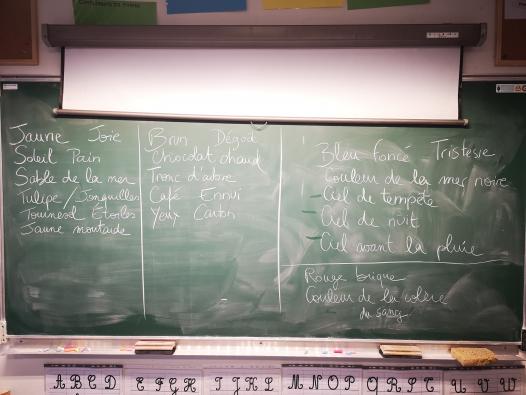 Jaune Joie
Soleil Pain
Sable de la mer
Tulipe / Jonquilles
Tournesol Étoiles
Jaune moutarde
Brun Dégoût
Chocolat chaud
Tronc d'arbre
Café Ennui
Yeux Carton
Bleu foncé Tristesse
Couleur de la mer noire
- Ciel de tempête
- Ciel de nuit
- Ciel avant la pluie
Rouge brique
Couleur de la colère
du sang
A B C D E F G H I J K L M N O P Q R S T U V W